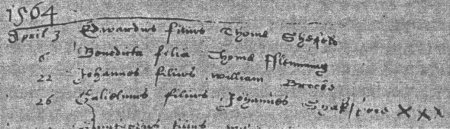 1564
April 3 Edwardus filius Thome Shepard
6 Benedicta filia Thome Fleminge
22 Johannes filius William Brooks
26 Gulielmus filius Johannes Shakspere XXX